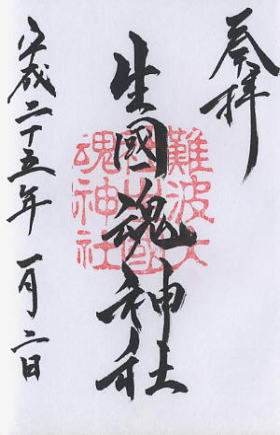 奉拝
生國魂神社
平成二十五年 一月二日
難波大
社生國
魂神社